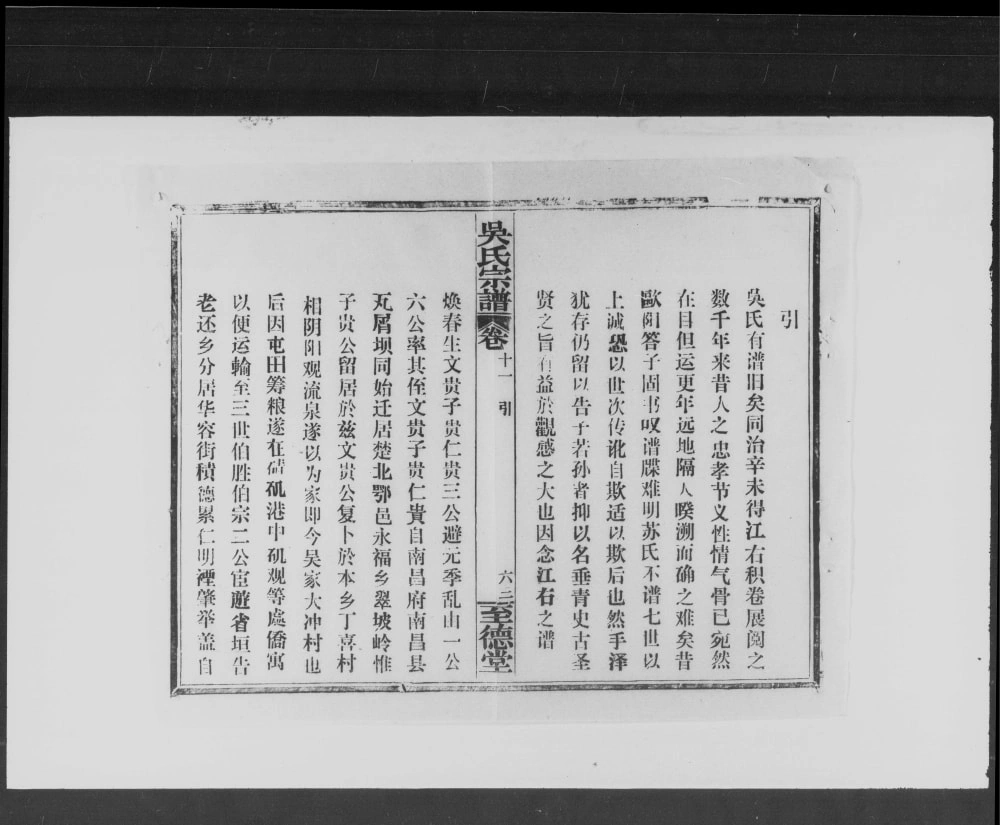 引
吳氏有谱旧矣同治辛未得江右积卷展阅之
数千年来昔人之忠孝节义性情气骨已宛然
在目但运更年远地隔人暌溯而确之难矣昔
歐阳答子固书叹谱牒难明苏氏不谱七世以
上诚恐以世次传讹自欺适以欺后也然手泽
犹存仍留以告子若孙者抑以名垂青史古圣
贤之旨有益於觀感之大也因念江右之谱
吳氏宗譜 卷 十一 引 六三 至德堂
焕春生文贵子贵仁贵三公避元季乱由一公
六公率其侄文贵子贵仁貴自南昌府南昌县
瓦屑坝同始迁居楚北鄂邑永福乡翠坡岭惟
子贵公留居於兹文贵公复卜於本乡丁喜村
相阴阳观流泉遂以为家即今吴家大冲村也
后因屯田筹粮遂在碛矶港中矶观等處僑寓
以便运輸至三世伯胜伯宗二公宦遊省垣告
老还乡分居华容街積德累仁明禋肇举盖自